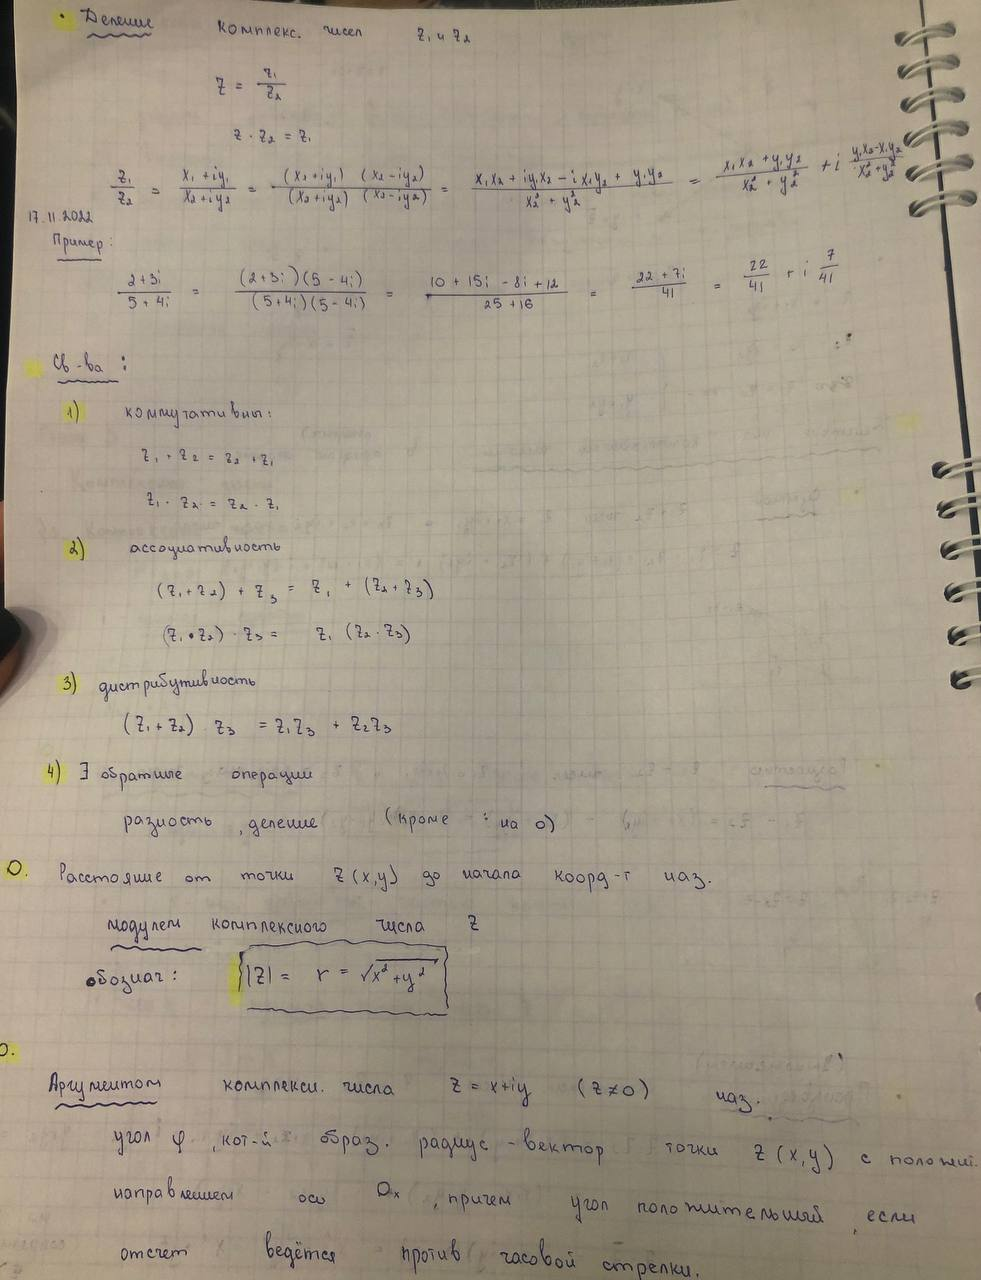 • Деление комплекс. чисел z₁ и z₂
z = z₁/z₂
z · z₂ = z₁
z₁/z₂ = (x₁ + iy₁)/(x₂ + iy₂) = ((x₁ + iy₁) (x₂ - iy₂))/((x₂ + iy₂) (x₂ - iy₂)) = (x₁x₂ + iy₁x₂ - ix₁y₂ + y₁y₂)/(x₂² + y₂²) = (x₁x₂ + y₁y₂)/(x₂² + y₂²) + i (y₁x₂ - x₁y₂)/(x₂² + y₂²)
17.11.2022
Пример:
(2+3i)/(5+4i) = ((2+3i)(5-4i))/((5+4i)(5-4i)) = (10 + 15i - 8i + 12)/(25+16) = (22 + 7i)/41 = 22/41 + i 7/41
Св-ва:
1) коммутативны:
z₁ + z₂ = z₂ + z₁
z₁ · z₂ = z₂ · z₁
2) ассоциативность
(z₁ + z₂) + z₃ = z₁ + (z₂ + z₃)
(z₁ • z₂) · z₃ = z₁ (z₂ · z₃)
3) дистрибутивность
(z₁ + z₂) z₃ = z₁z₃ + z₂z₃
4) ∃ обратные операции
разность, деление (кроме : на 0)
О. Расстояние от точки z(x,y) до начала коорд-т наз.
модулем комплексного числа z
обознач: |z| = r = √(x² + y²)
О.
Аргументом комплексн. числа z = x+iy (z ≠ 0) наз.
угол φ, кот-й образ. радиус-вектор точки z(x,y) с положит.
направлением оси Ox, причем угол положительный, если
отсчет ведётся против часовой стрелки.